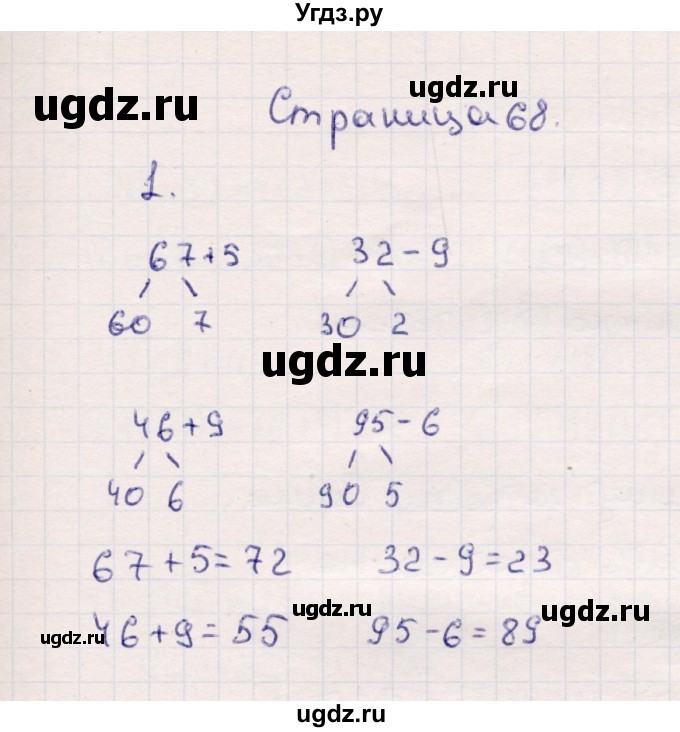 Угдз.ру
ugdz.ru
ugdz.ru
Страница 68.
1.
67+5 32-9
60 7 30 2
ugdz.ru
46+9 95-6
40 6 90 5
67+5=72 32-9=23
ugdz.ru ugdz.ru
46+9=55 95-6=89
ugdz.ru
ugdz.ru